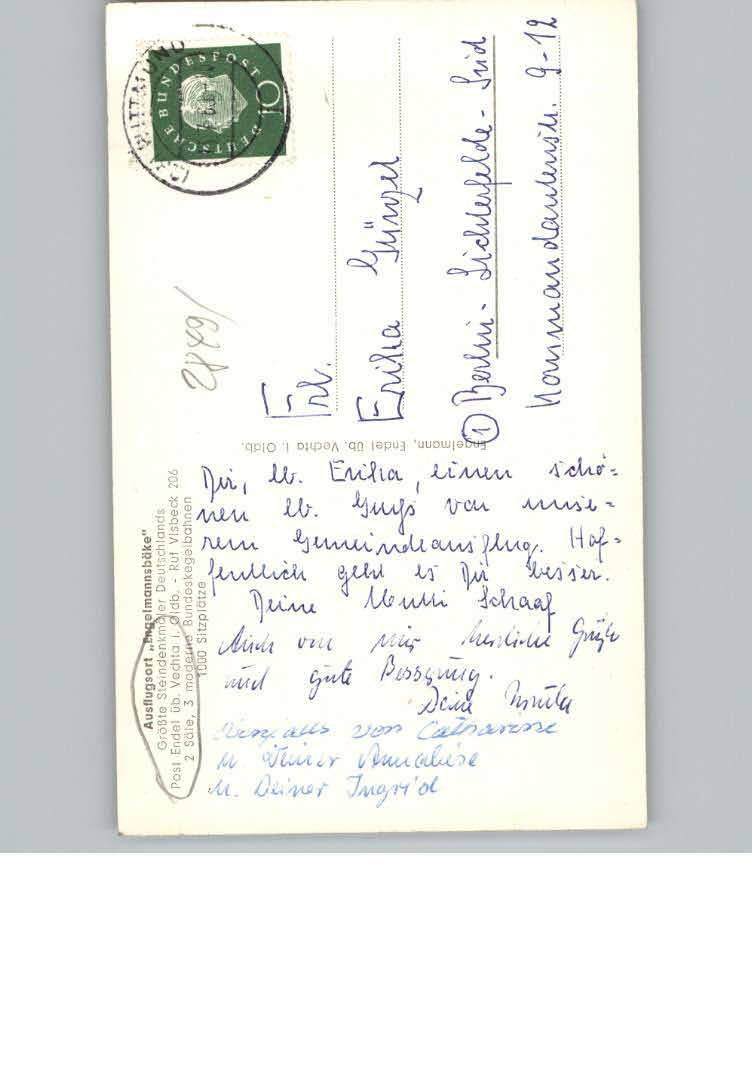 Ausflugsort „Engelmannsbäke"
Größte Steindenkmäler Deutschlands
Post Endel üb. Vechta i. Oldb. - Ruf Visbeck 206
2 Säle, 3 moderne Bundeskegelbahnen
1000 Sitzplätze
Dir, lb. Erika, einen schö=
nen lb. Gruß von unse=
rem Gemeindeausflug. Hof=
fentlich geht es Dir besser.
Deine Mutti Schaaf
Auch von mir herzliche Grüße
und gute Besserung.
Deine Ursula
von Catharine
u Deiner Annaliese
u. Deiner Ingrid
Engelmann, Endel üb. Vechta i. Oldb.
2879/
WITTMUND
DEUTSCHE BUNDESPOST
10
Frl.
Erika Günzel
(1) Berlin-Lichterfelde-Süd
Kommandantenstr. 9-12